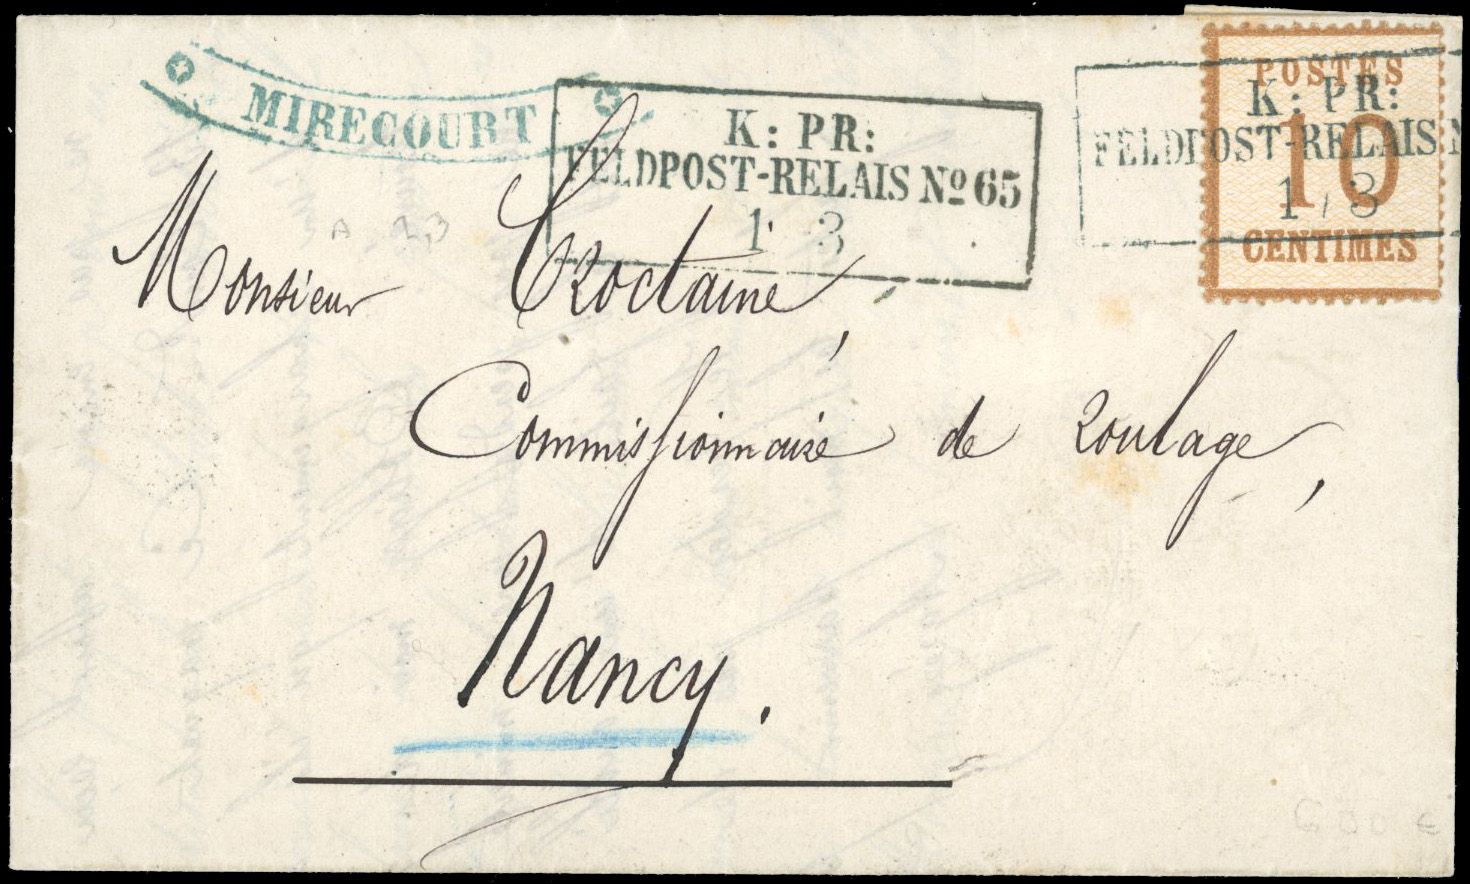 MIRECOURT
K: PR:
FELDPOST-RELAIS No 65
1 3
POSTES
10
CENTIMES
K: PR:
FELDPOST-RELAIS N
1 / 3
Monsieur Croctaine,
Commissionnaire de roulage,
Nancy.
A 33
600 €